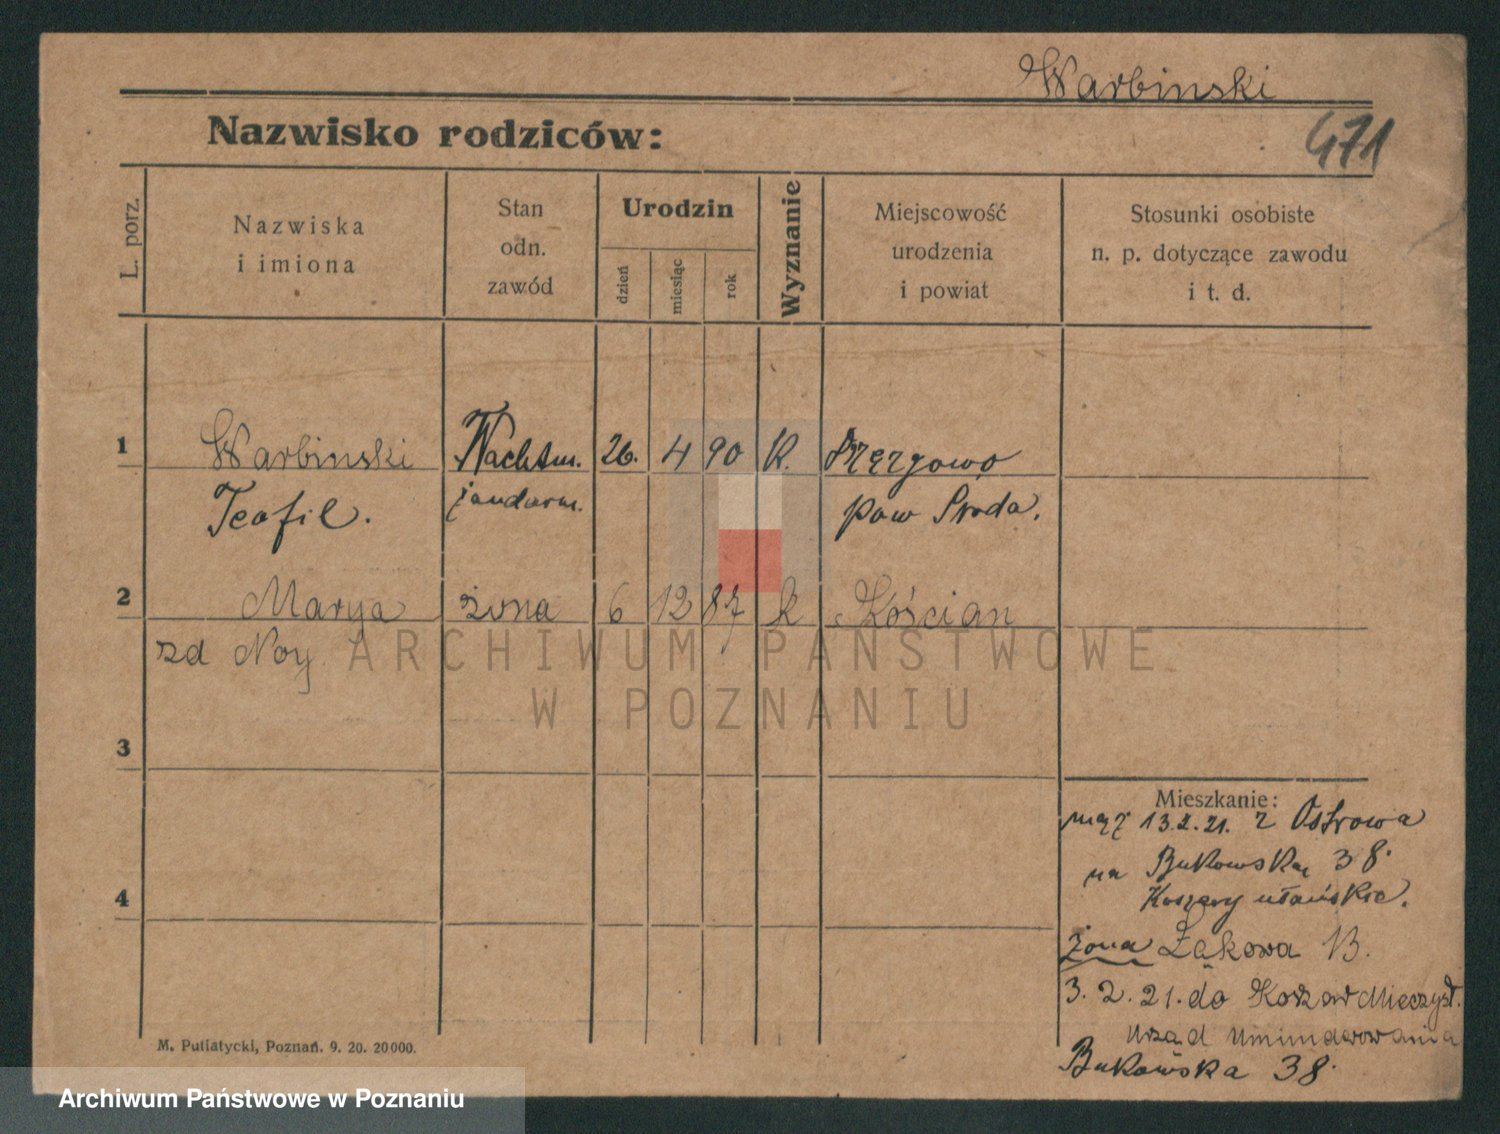 Warbinski
471
Nazwisko rodziców:
L. porz.
Nazwiska
i imiona
Stan
odn.
zawód
Urodzin
dzień
miesiąc
rok
Wyznanie
Miejscowość
urodzenia
i powiat
Stosunki osobiste
n. p. dotyczące zawodu
i t. d.
1 Warbinski Wachtm. 26. 4 90 K.
Teofil. żandarm. pow Sroda.
2 Marya żona 6 12 87 k Kościan
zd Noy.
ARCHIWUM PAŃSTWOWE
W POZNANIU
3
4
Mieszkanie:
mąż 13.2.21. z Ostrowa
na Bukowska 38.
Koszary ułańskie.
żona Łąkowa 13.
3.2.21. do Koszar Mieczysł.
Urząd Umundurowania
Bukowska 38.
M. Putiatycki, Poznań. 9. 20. 20000.
Archiwum Państwowe w Poznaniu